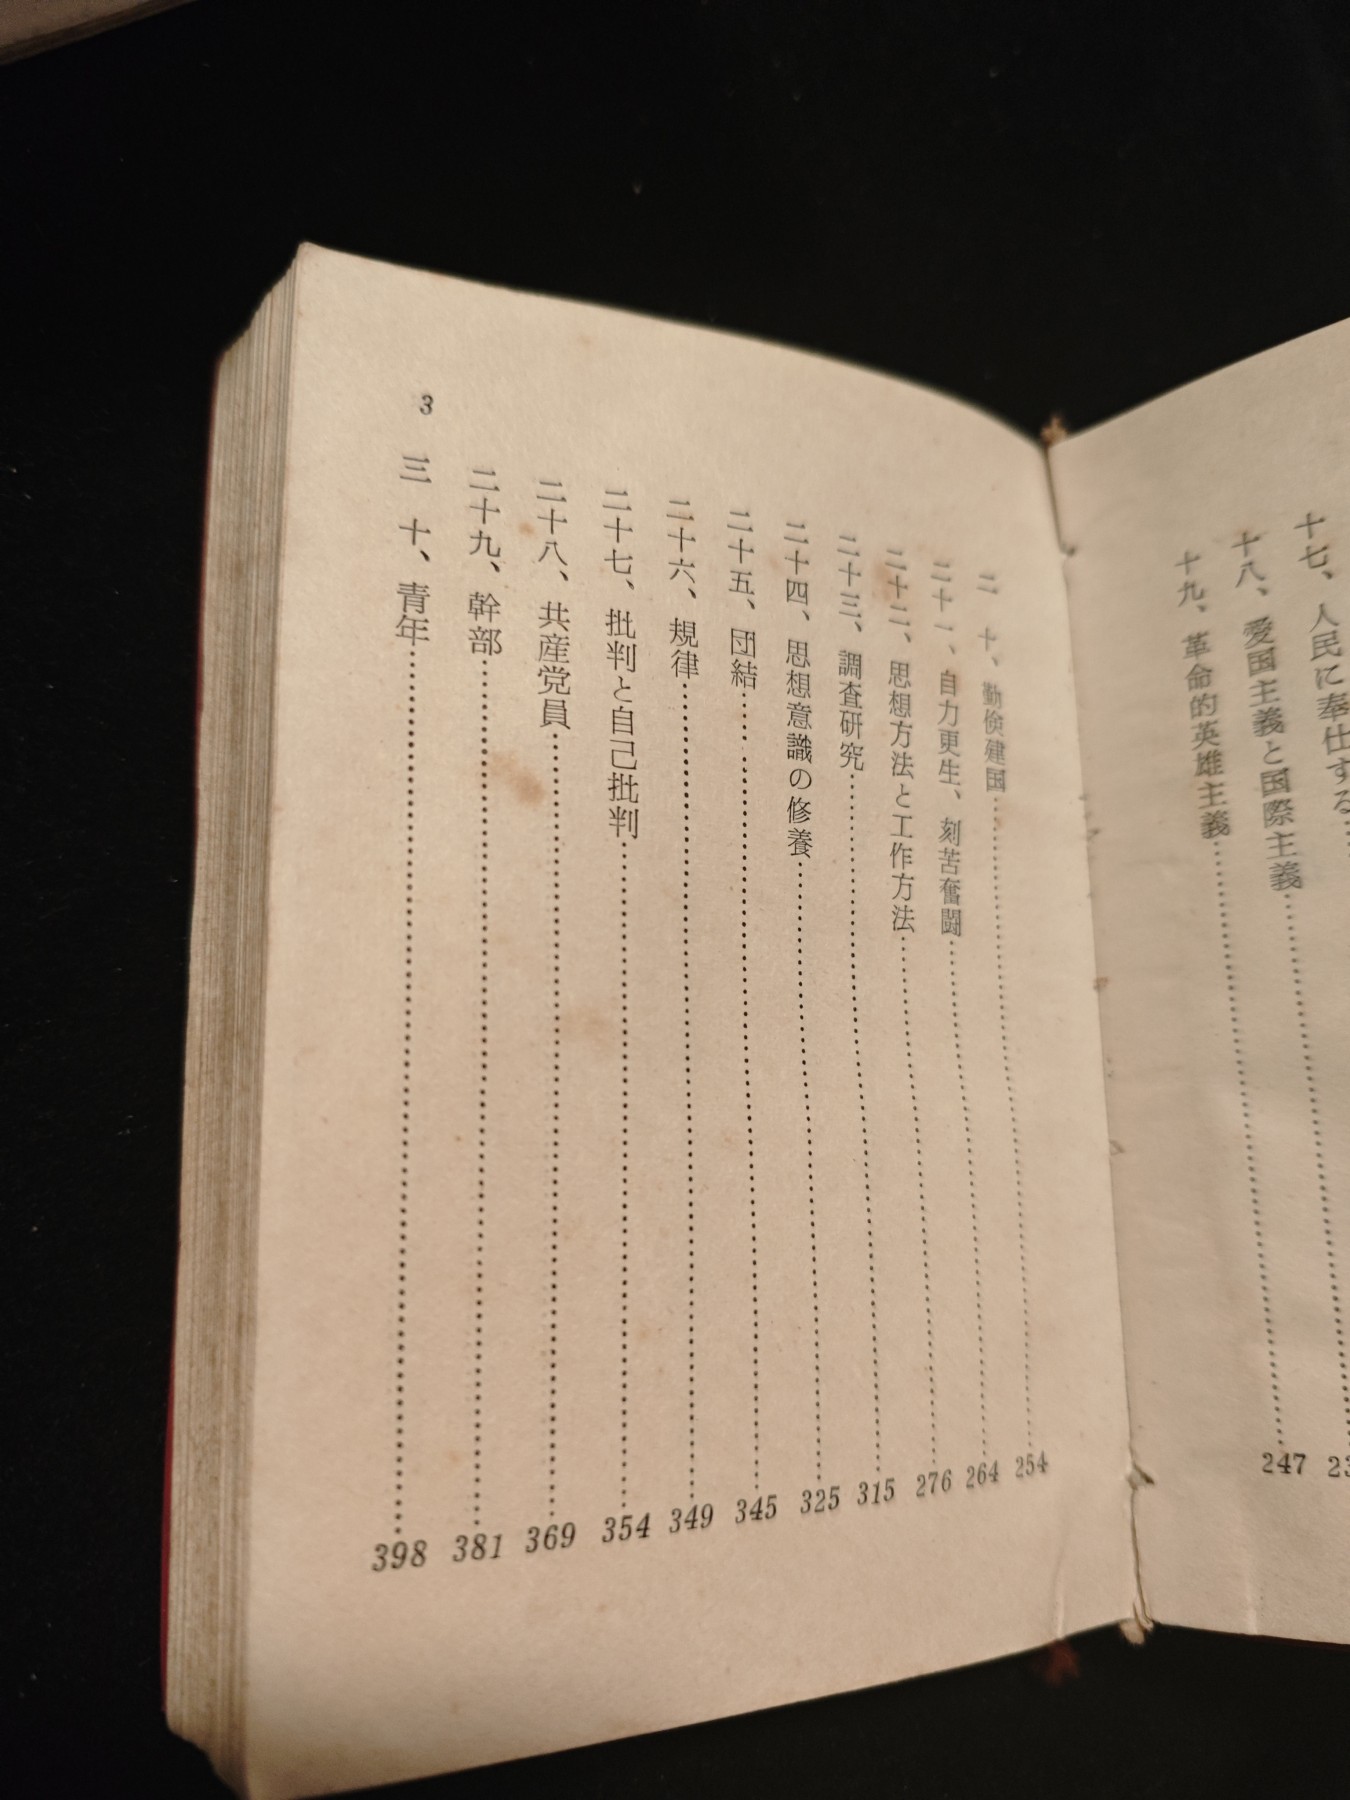 十七、人民に奉仕する
十八、愛国主義と国際主義……247
十九、革命的英雄主義
二　十、勤倹建国……254
二十一、自力更生、刻苦奮闘……264
二十二、思想方法と工作方法……276
二十三、調査研究……315
二十四、思想意識の修養……325
二十五、団結……345
二十六、規律……349
二十七、批判と自己批判……354
二十八、共産党員……369
二十九、幹部……381
三　十、青年……398
3